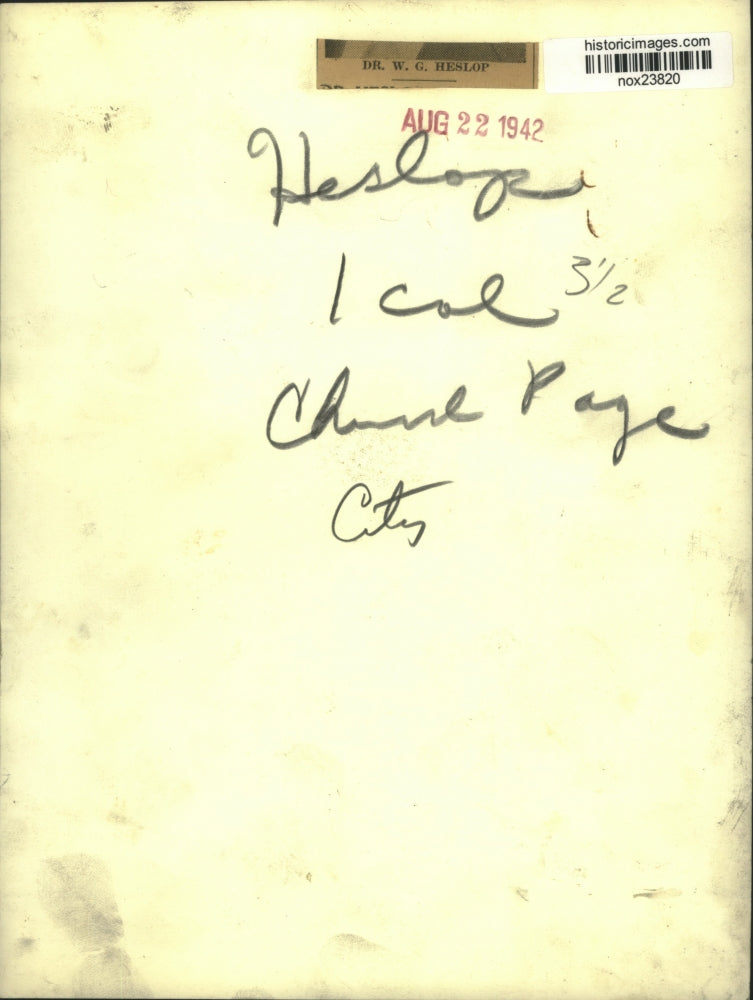 historicimages.com
nox23820
DR. W. G. HESLOP
AUG 22 1942
Heslop
1 col 3 1/2
Church Page
City